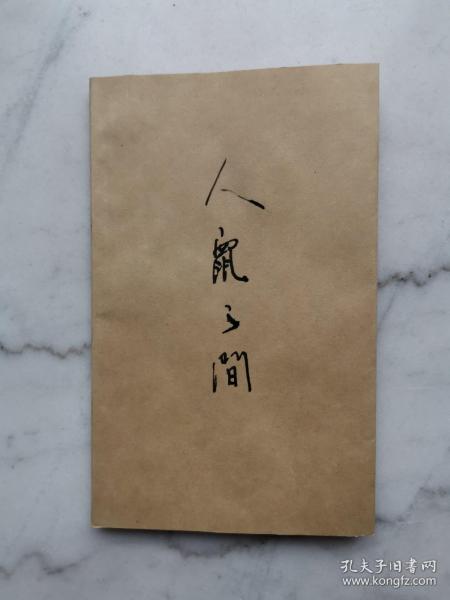 人鼠之間
孔夫子旧书网
www.kongfz.com